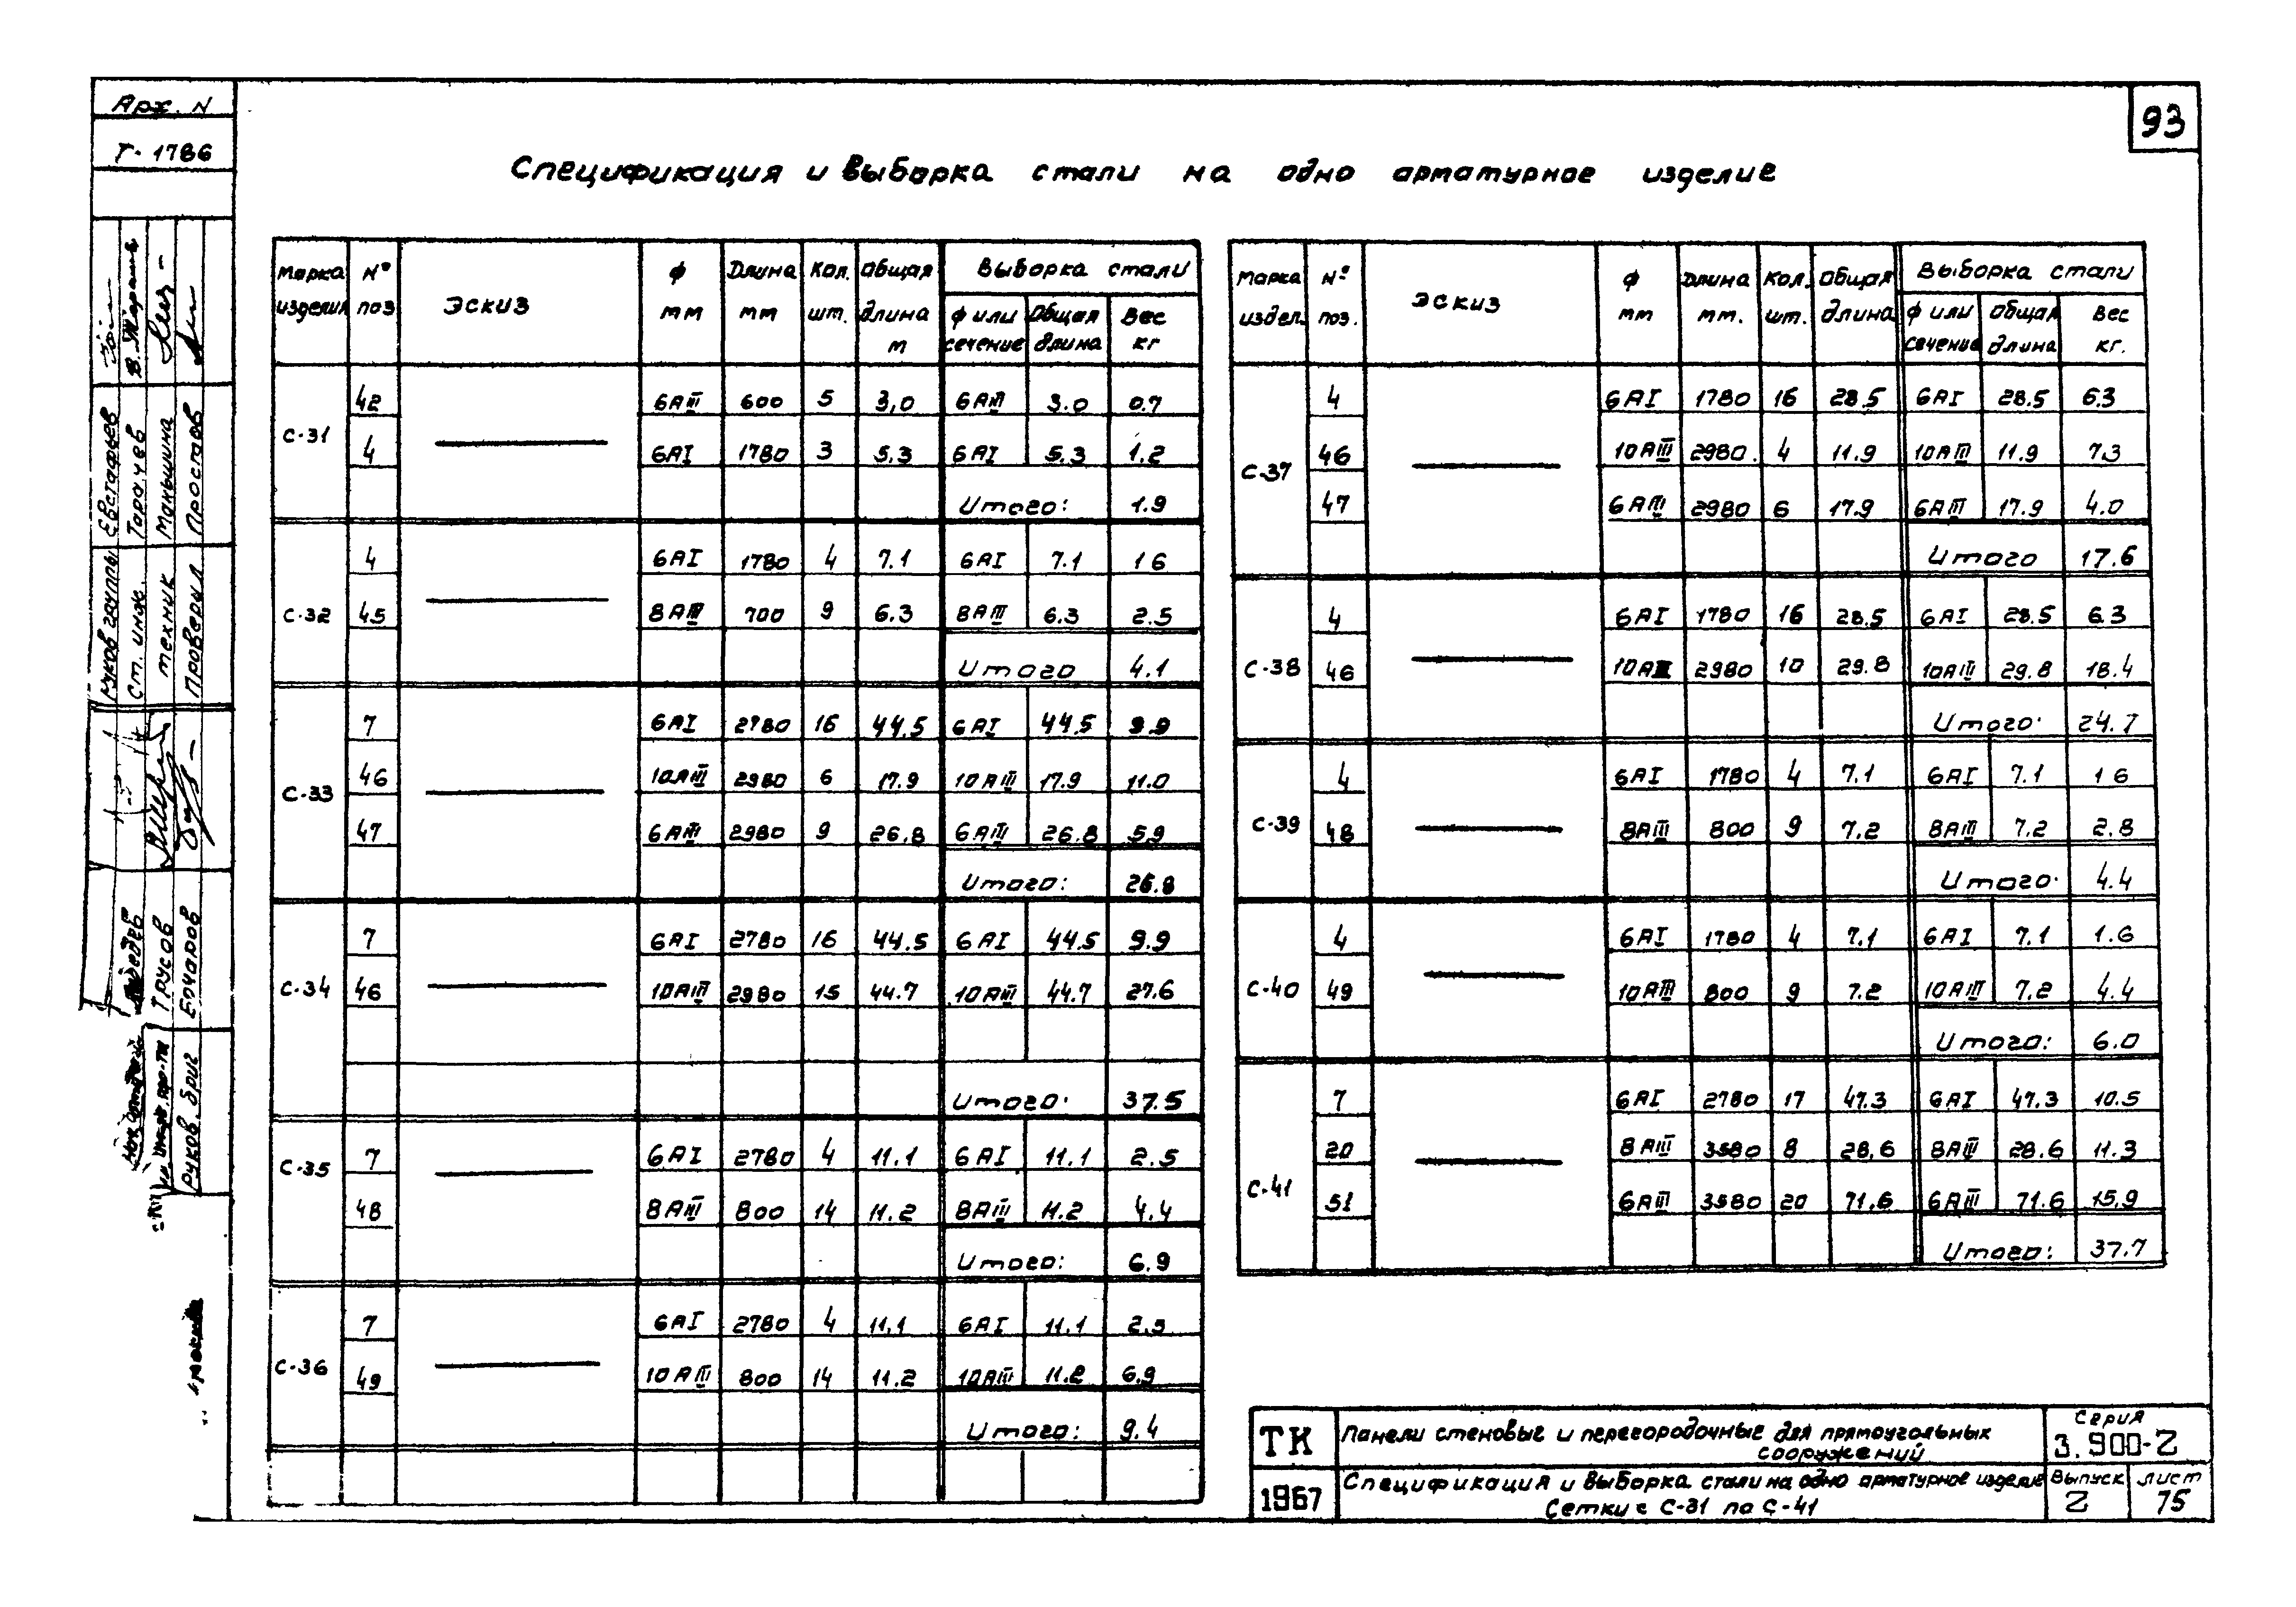 Арх. N
Т-1786
93
Спецификация и выборка стали на одно арматурное изделие
Марка изделия | № поз | Эскиз | ф мм | Длина мм | Кол. шт. | Общая длина м | Выборка стали: ф или сечение | Общая длина | Вес кг
С-31 | 42 | 6АIII | 600 | 5 | 3,0 | 6АIII | 3.0 | 0.7
4 | 6АI | 1780 | 3 | 5.3 | 6АI | 5.3 | 1.2
Итого: 1.9
С-32 | 4 | 6АI | 1780 | 4 | 7.1 | 6АI | 7.1 | 1 6
45 | 8АIII | 700 | 9 | 6.3 | 8АIII | 6.3 | 2.5
Итого 4.1
С-33 | 7 | 6АI | 2780 | 16 | 44.5 | 6АI | 44.5 | 9.9
46 | 10АIII | 2980 | 6 | 17.9 | 10АIII | 17.9 | 11.0
47 | 6АIII | 2980 | 9 | 26.8 | 6АIII | 26.8 | 5.9
Итого: 26.8
С-34 | 7 | 6АI | 2780 | 16 | 44.5 | 6АI | 44.5 | 9.9
46 | 10АIII | 2980 | 15 | 44.7 | 10АIII | 44.7 | 27.6
Итого. 37.5
С-35 | 7 | 6АI | 2780 | 4 | 11.1 | 6АI | 11.1 | 2.5
48 | 8АIII | 800 | 14 | 11.2 | 8АIII | 11.2 | 4.4
Итого: 6.9
С-36 | 7 | 6АI | 2780 | 4 | 11.1 | 6АI | 11.1 | 2.5
49 | 10АIII | 800 | 14 | 11.2 | 10АIII | 11.2 | 6.9
Итого: 9.4
Марка издел. | № поз. | Эскиз | ф мм | Длина мм. | Кол. шт. | Общая длина | Выборка стали: ф или сечение | Общая длина | Вес кг.
С-37 | 4 | 6АI | 1780 | 16 | 28.5 | 6АI | 28.5 | 6.3
46 | 10АIII | 2980 | 4 | 11.9 | 10АIII | 11.9 | 7.3
47 | 6АIII | 2980 | 6 | 17.9 | 6АIII | 17.9 | 4.0
Итого 17.6
С-38 | 4 | 6АI | 1780 | 16 | 28.5 | 6АI | 28.5 | 6.3
46 | 10АIII | 2980 | 10 | 29.8 | 10АIII | 29.8 | 18.4
Итого. 24.7
С-39 | 4 | 6АI | 1780 | 4 | 7.1 | 6АI | 7.1 | 1 6
48 | 8АIII | 800 | 9 | 7.2 | 8АIII | 7.2 | 2.8
Итого. 4.4
С-40 | 4 | 6АI | 1780 | 4 | 7.1 | 6АI | 7.1 | 1.6
49 | 10АIII | 800 | 9 | 7.2 | 10АIII | 7.2 | 4.4
Итого: 6.0
С-41 | 7 | 6АI | 2780 | 17 | 47.3 | 6АI | 47.3 | 10.5
20 | 8АIII | 3580 | 8 | 28,6 | 8АIII | 28.6 | 11.3
51 | 6АIII | 3580 | 20 | 71.6 | 6АIII | 71.6 | 15.9
Итого: 37.7
ТК
1967
Панели стеновые и перегородочные для прямоугольных
сооружений
Спецификация и выборка стали на одно арматурное изделие
Сетки с С-31 по С-41
Серия
3.900-2
Выпуск
2
Лист
75
Руков группы Евстафьев
Ст. инж. Тарачев
Техник Маньшина
Проверил Простов
Трусов
Руков. бриг Бочаров